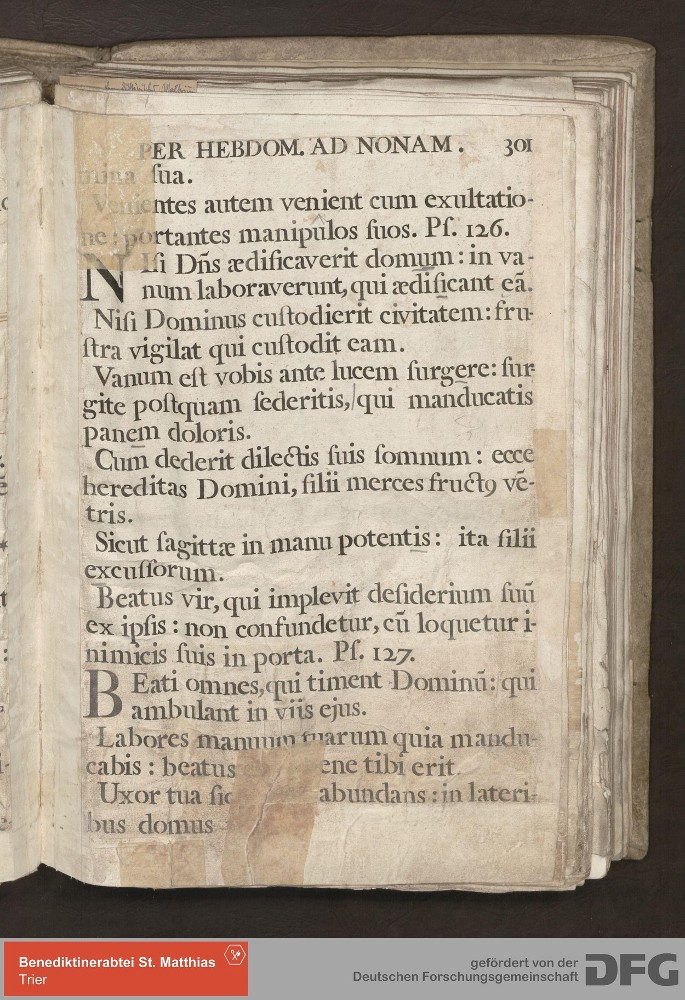 PER HEBDOM. AD NONAM. 301
mina ſua.
Venientes autem venient cum exultatio-
ne: portantes manipulos ſuos. Pſ. 126.
NIſi Dn̄s ædificaverit domum: in va-
num laboraverunt, qui ædificant eā.
Niſi Dominus cuſtodierit civitatem: fru-
ſtra vigilat qui cuſtodit eam.
Vanum eſt vobis ante lucem ſurgere: ſur-
gite poſtquam ſederitis, qui manducatis
panem doloris.
Cum dederit dilectis ſuis ſomnum: ecce
hereditas Domini, filii merces fructꝯ vē-
tris.
Sicut ſagittæ in manu potentis: ita filii
excuſſorum.
Beatus vir, qui implevit deſiderium ſuū
ex ipſis: non confundetur, cū loquetur i-
nimicis ſuis in porta. Pſ. 127.
BEati omnes, qui timent Dominū: qui
ambulant in viis ejus.
Labores manuum tuarum quia mandu-
cabis: beatus ene tibi erit.
Uxor tua abundans: in lateri-
bus domus
Benediktinerabtei St. Matthias
Trier
gefördert von der
Deutschen Forschungsgemeinschaft DFG